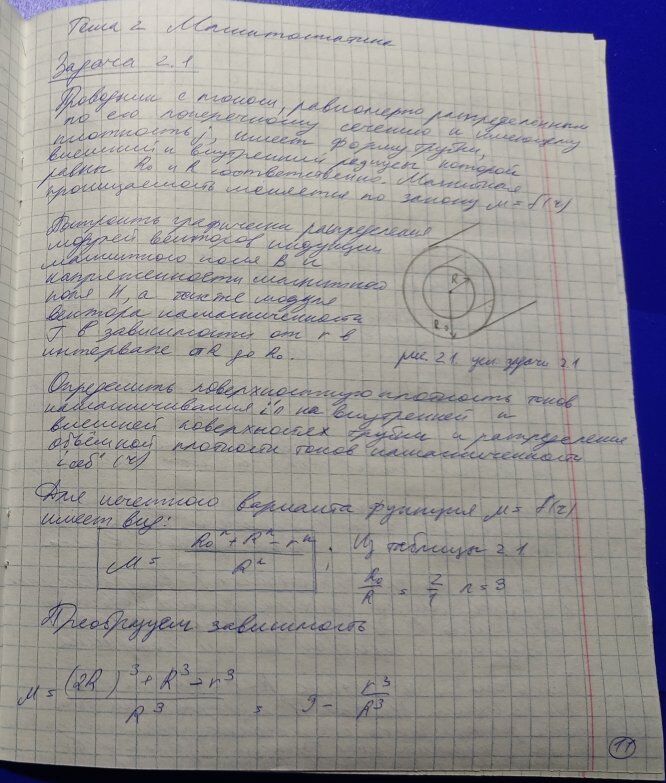 Тема 2 Магнитостатика
Задача 2.1
Проводник с током, равномерно распределенным
по его поперечному сечению и имеющему
плотность j, имеет форму трубки,
внешний и внутренний радиусы которой
равны R₀ и R соответственно. Магнитная
проницаемость меняется по закону μ = f(r)
Построить графически распределения
модулей векторов индукции
магнитного поля B и
напряженности магнитного
поля H, а также модуля
вектора намагниченности
J в зависимости от r в
интервале от R до R₀.
R
R₀
рис. 2.1. усл. задачи 2.1
Определить поверхностную плотность токов
намагничивания i'п на внутренней и
внешней поверхностях трубки и распределение
объёмной плотности токов намагниченности
i'об (r)
Для нечетного варианта функция μ = f(r)
имеет вид:
μ = (R₀ⁿ + Rⁿ - rⁿ) / Rⁿ ; Из таблицы 2.1
R₀/R = 2/1 n = 3
Преобразуем зависимость
μ = ((2R)³ + R³ - r³) / R³ = 9 - r³/R³
11